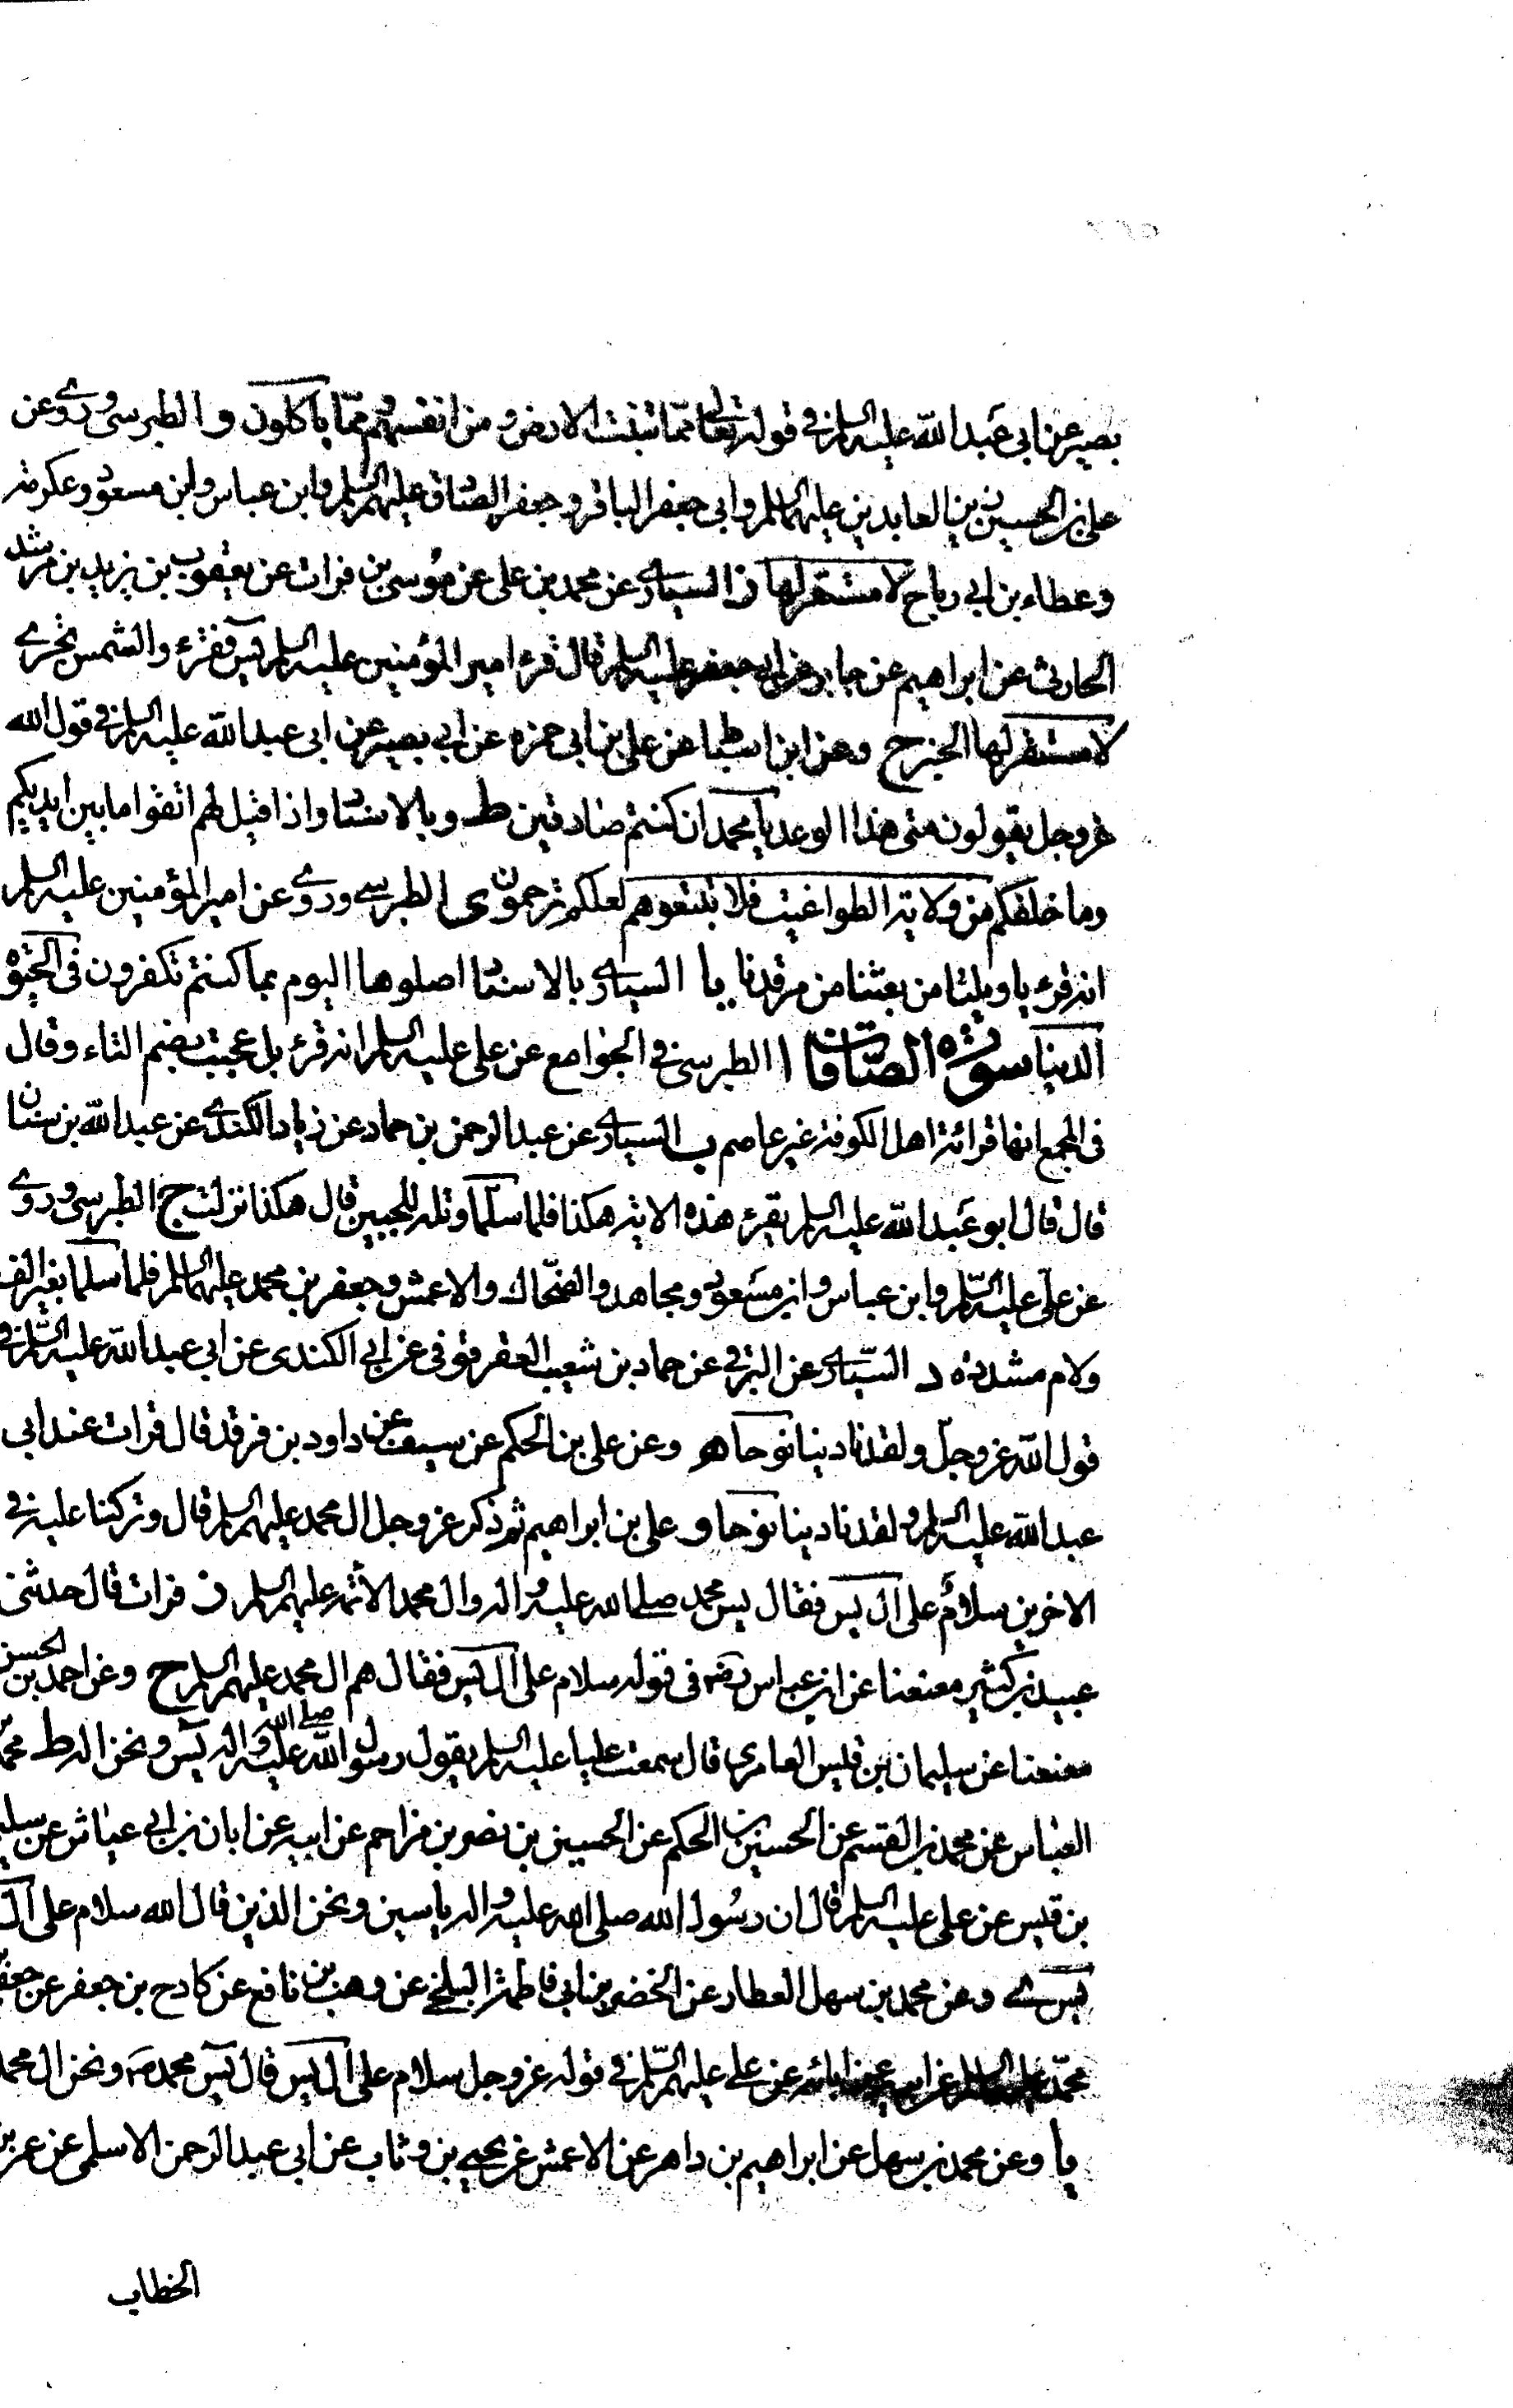 بصير عن ابى عبد الله عليه السلم فى قوله تعالى مما تنبت الارض و من انفسهم و مما ياكلون و الطبرسى وروى عن
على بن الحسين زين العابدين عليهما السلم وابى جعفر الباقر و جعفر الصادق عليهم السلم وابن عباس وابن مسعود وعكرمة
وعطاء بن ابى رباح لا مستقر لها ز السيارى عن محمد بن على عن موسى بن فرات عن يعقوب بن يزيد بن مرثد
الحارثى عن ابراهيم عن جابر عن ابى جعفر عليه السلم قال قرء امير المؤمنين عليه السلم يس فقرء والشمس تجرى
لا مستقر لها الخبر ح وعن ابن اسباط عن على بن ابى حمزه عن ابى بصير عن ابى عبد الله عليه السلم فى قول الله
عز وجل يقولون متى هذا الوعد يا محمد ان كنتم صادقين ط وبالاسناد واذا قيل لهم اتقوا ما بين ايديكم
وما خلفكم من ولاية الطواغيت فلا تتبعوهم لعلكم ترحمون ى الطبرسى وروى عن امير المؤمنين عليه السلم
انه قرء يا ويلتا من بعثنا من مرقدنا يا السيارى بالاسناد اصلوها اليوم بما كنتم تكفرون فى الحيوة
الدنيا سورة الصافات ا الطبرسى فى الجوامع عن على عليه السلم انه قرء بل عجبت بضم التاء وقال
فى المجمع انها قرائة اهل الكوفة غير عاصم ب السيارى عن عبد الرحمن بن حماد عن زياد الكندى عن عبد الله بن سنان
قال قال ابو عبد الله عليه السلم يقرء هذه الاية هكذا فلما سلما وتله للجبين قال هكذا نزلت ج الطبرسى وروى
عن على عليه السلم وابن عباس وابن مسعود ومجاهد والضحاك والاعمش وجعفر بن محمد عليهما السلم فلما سلما بغير الف
ولام مشددة د السيارى عن البرقى عن حماد بن شعيب العقرقوفى عن ابى الكندى عن ابى عبد الله عليه السلم فى
قول الله عز وجل ولقد نادينا نوحا هو وعن على بن الحكم عن سيف عن داود بن فرقد قال قرات عند ابى
عبد الله عليه السلم ولقد نادينا نوحا و على بن ابراهيم ثم ذكر عز وجل ال محمد عليهم السلم قال وتركنا عليه فى
الاخرين سلام على ال يس فقال يس محمد صلى الله عليه واله وال محمد الائمة عليهم السلم ز فرات قال حدثنى
عبيد بن كثير معنعنا عن ابن عباس رضه فى قوله سلام على ال يس فقال هم ال محمد عليهم السلم ح وعن احمد بن الحسن
معنعنا عن سليمان بن قيس العامرى قال سمعت عليا عليه السلم يقول رسول الله صلى الله عليه واله يس ونحن اله ط محمد
العباس عن محمد بن القسم عن الحسين بن الحكم عن الحسين بن نصر بن مزاحم عن ابيه عن ابان بن ابى عياش عن سليم
بن قيس عن على عليه السلم قال ان رسول الله صلى الله عليه واله ياسين ونحن الذين قال الله سلام على ال
يس ى وعن محمد بن سهل العطار عن الخضر بن ابى فاطمة البلخى عن وهب بن نافع عن كادح بن جعفر عن جعفر
محمد عليه السلم عن ابيه عن ابائه عن على عليهم السلم فى قوله عز وجل سلام على ال يس قال يس محمد ص ونحن ال محمد
يا وعن محمد بن سهل عن ابراهيم بن داهر عن الاعمش عن يحيى بن وثاب عن ابى عبد الرحمن الاسلمى عن عمر بن
الخطاب